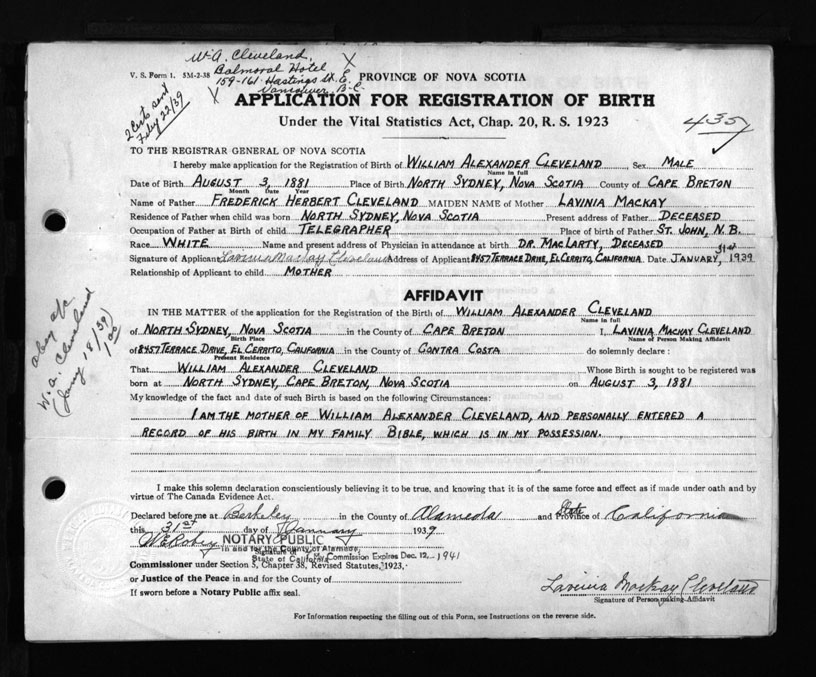 W. A. Cleveland,
Balmoral Hotel
159-161 Hastings St. E.
Vancouver, B.C.
X
X
V. S. Form 1. 5M-2-38
PROVINCE OF NOVA SCOTIA
2 Certs sent
Feby 22/39
APPLICATION FOR REGISTRATION OF BIRTH
Under the Vital Statistics Act, Chap. 20, R. S. 1923
435
TO THE REGISTRAR GENERAL OF NOVA SCOTIA
I hereby make application for the Registration of Birth of WILLIAM ALEXANDER CLEVELAND Sex MALE
Name in full
Date of Birth AUGUST 3, 1881 Place of Birth NORTH SYDNEY, NOVA SCOTIA County of CAPE BRETON
Month Date Year
Name of Father FREDERICK HERBERT CLEVELAND MAIDEN NAME of Mother LAVINIA MACKAY
Residence of Father when child was born NORTH SYDNEY, NOVA SCOTIA Present address of Father DECEASED
Occupation of Father at Birth of child TELEGRAPHER Place of birth of Father ST. JOHN, N.B.
Race WHITE Name and present address of Physician in attendance at birth DR. MACLARTY, DECEASED
Signature of Applicant Lavinia Mackay Cleveland Address of Applicant 8457 TERRACE DRIVE, EL CERRITO, CALIFORNIA Date JANUARY 31st, 1939
Relationship of Applicant to child MOTHER
AFFIDAVIT
IN THE MATTER of the application for the Registration of the Birth of WILLIAM ALEXANDER CLEVELAND
Name in full
of NORTH SYDNEY, NOVA SCOTIA in the County of CAPE BRETON I, LAVINIA MACKAY CLEVELAND
Birth Place Name of Person Making Affidavit
of 8457 TERRACE DRIVE, EL CERRITO, CALIFORNIA in the County of CONTRA COSTA do solemnly declare :
Present Residence
That WILLIAM ALEXANDER CLEVELAND Whose Birth is sought to be registered was
born at NORTH SYDNEY, CAPE BRETON, NOVA SCOTIA on AUGUST 3, 1881
My knowledge of the fact and date of such Birth is based on the following Circumstances:
I AM THE MOTHER OF WILLIAM ALEXANDER CLEVELAND, AND PERSONALLY ENTERED A
RECORD OF HIS BIRTH IN MY FAMILY BIBLE, WHICH IS IN MY POSSESSION.
W. A. Cleveland
(Jany 18/39)
1.00
I make this solemn declaration conscientiously believing it to be true, and knowing that it is of the same force and effect as if made under oath and by
virtue of The Canada Evidence Act.
Declared before me at Berkeley in the County of Alameda and State Province of California
this 31st day of January 1939
NOTARY PUBLIC
in and for the County of Alameda,
Signature of
State of California My Commission Expires Dec. 12, 1941
Commissioner under Section 5, Chapter 38, Revised Statutes, 1923.
or Justice of the Peace in and for the County of
If sworn before a Notary Public affix seal.
Lavinia Mackay Cleveland
Signature of Person making Affidavit
For Information respecting the filling out of this Form, see Instructions on the reverse side.